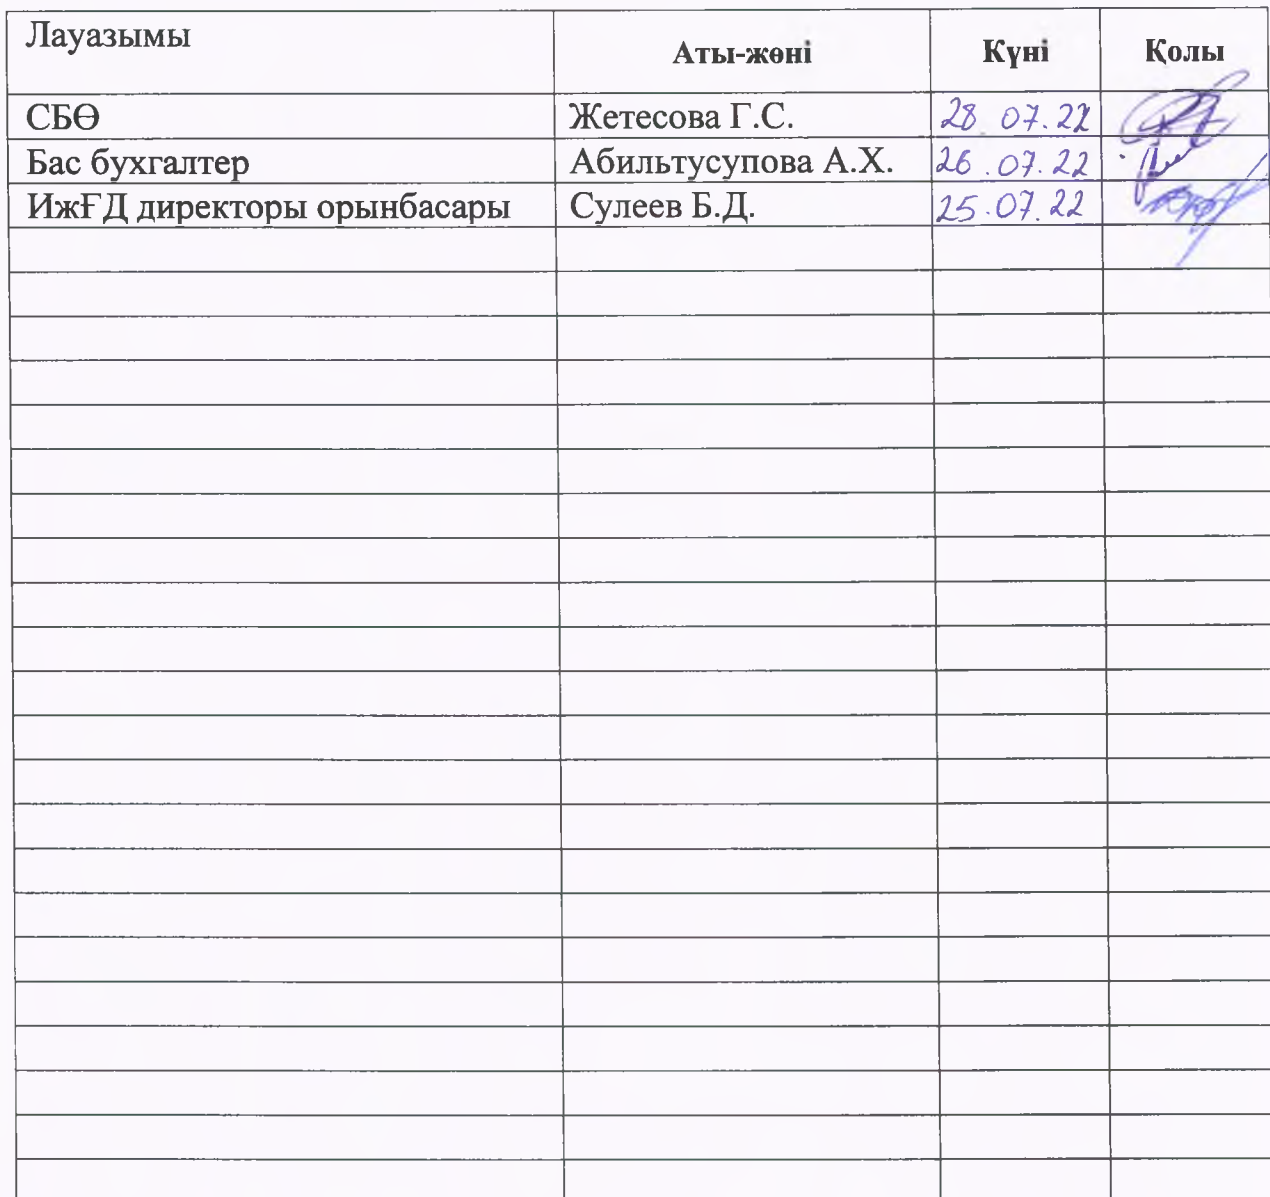 Лауазымы Аты-жөні Күні Қолы
СБӨ Жетесова Г.С. 28.07.22
Бас бухгалтер Абильтусупова А.Х. 26.07.22
ИжҒД директоры орынбасары Сулеев Б.Д. 25.07.22